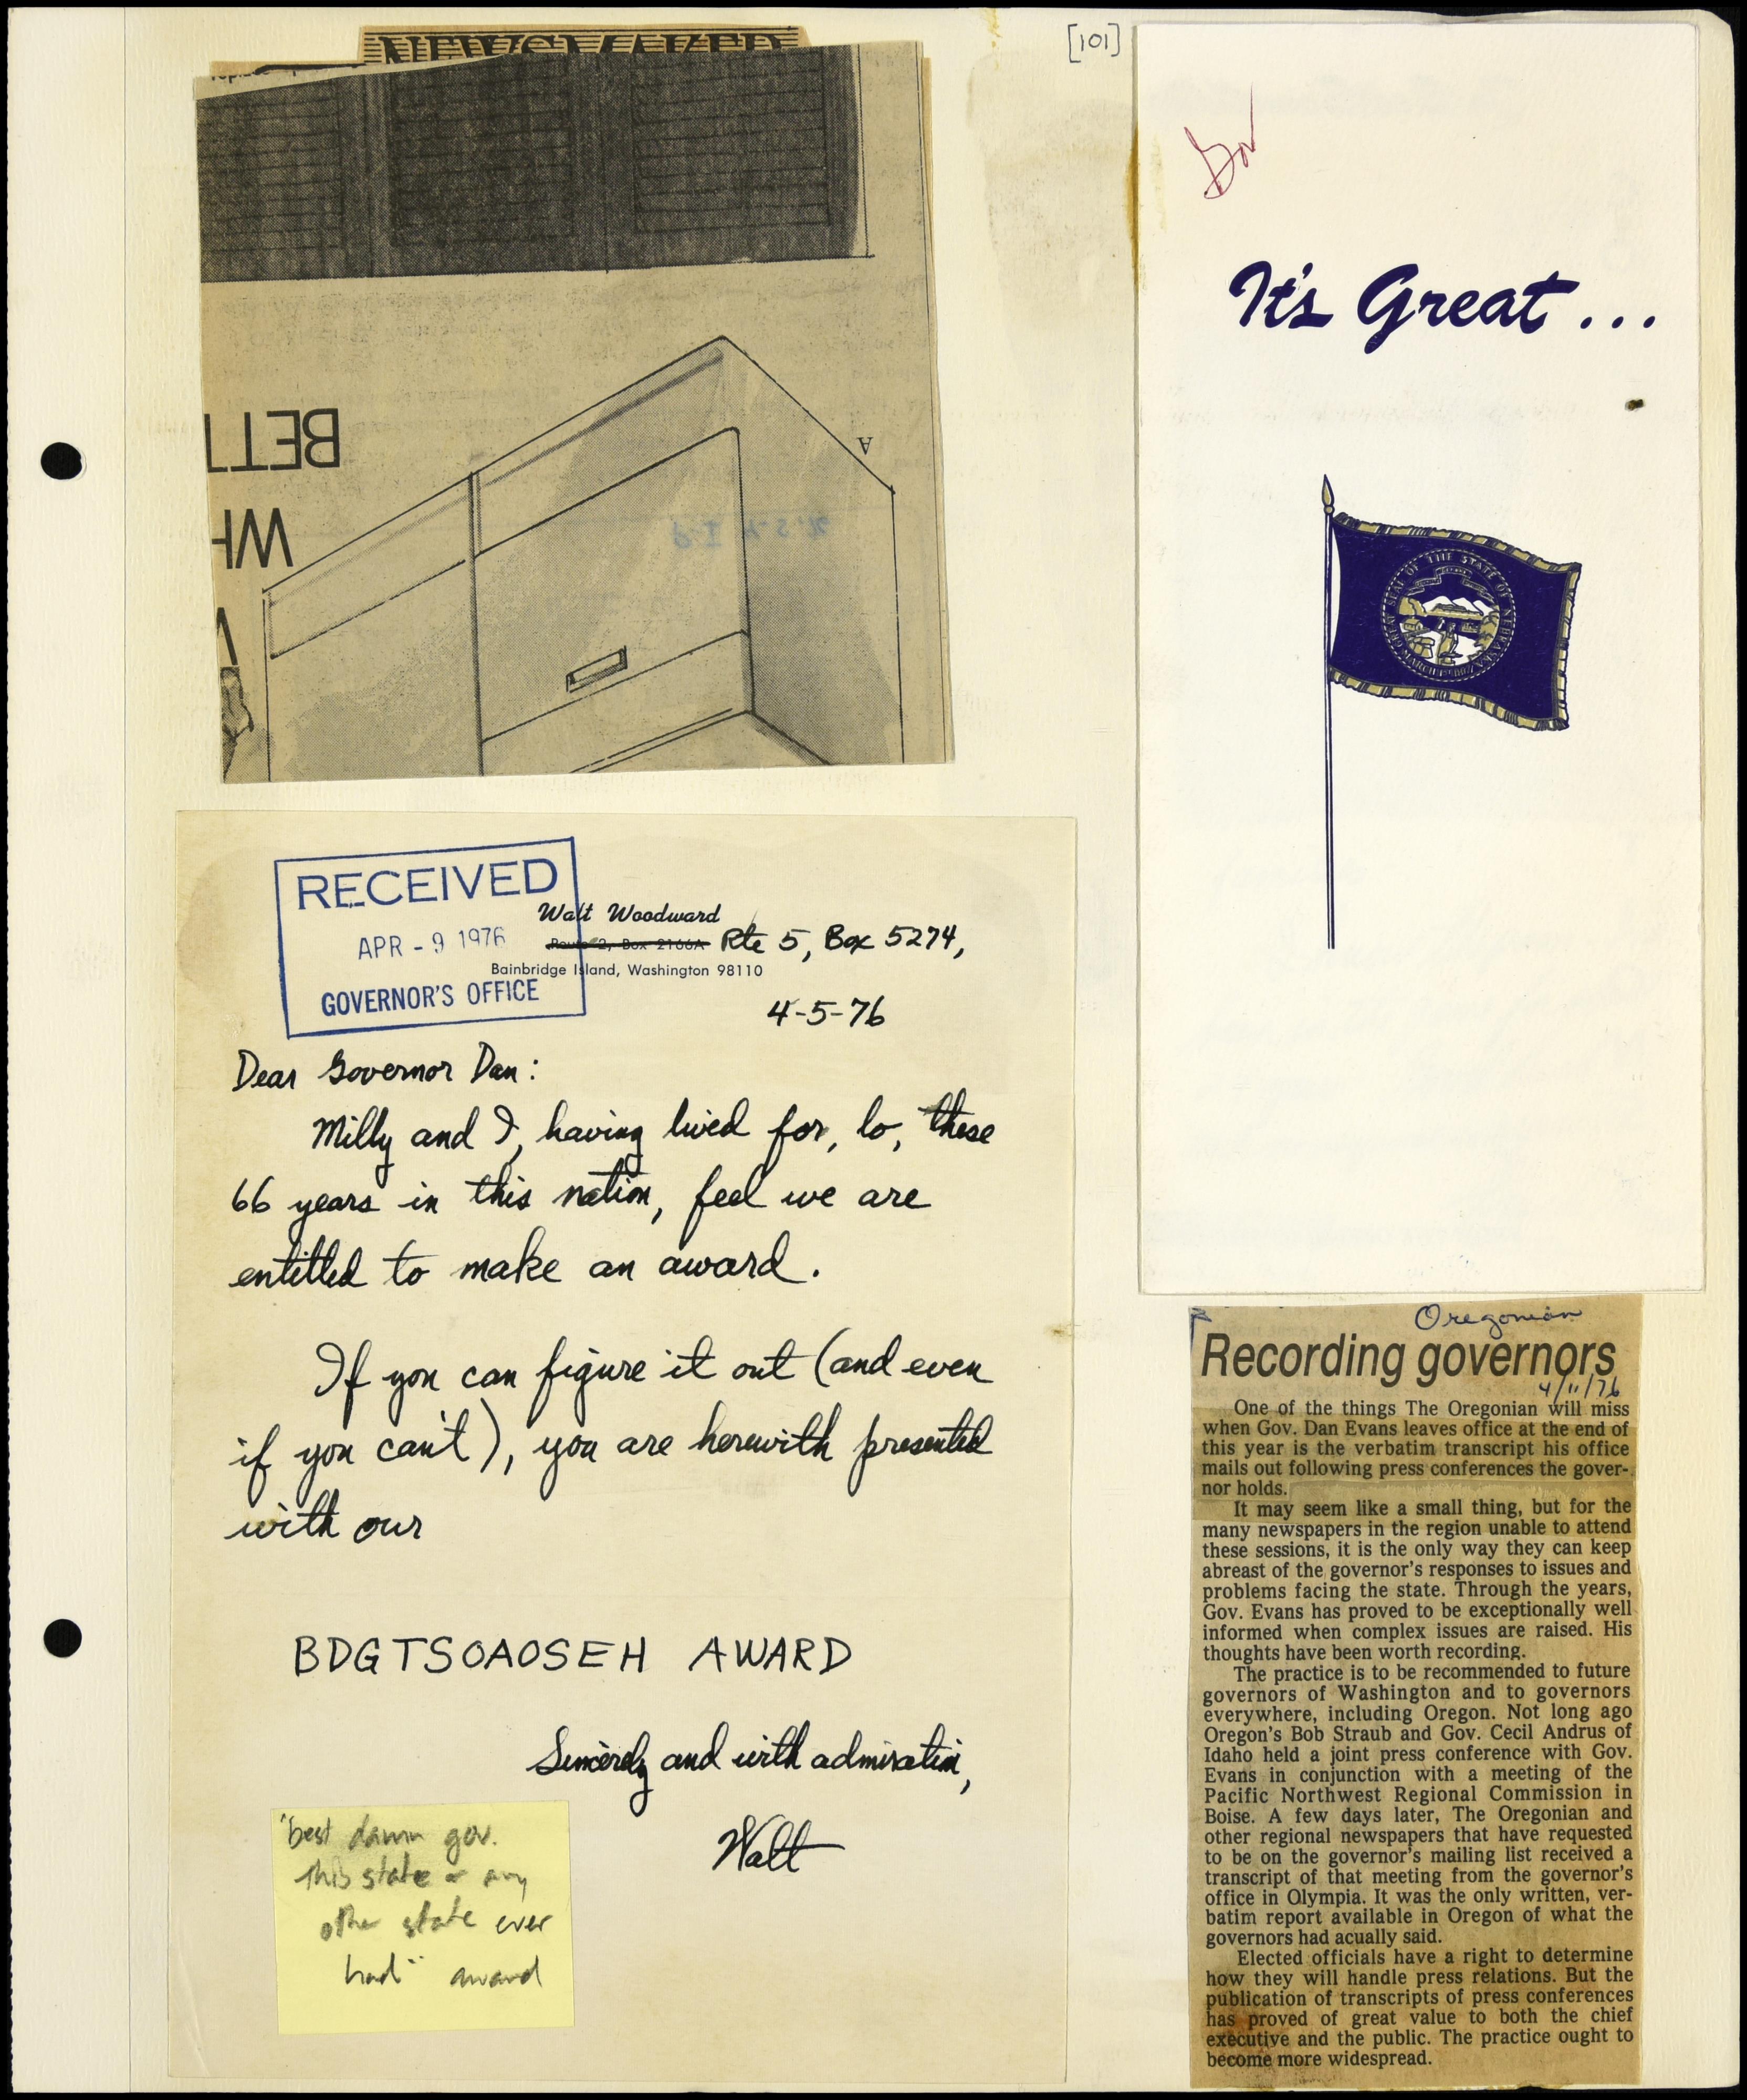 NEWSMAKER
[101]
BETT
WH
A
RECEIVED
APR - 9 1976
GOVERNOR'S OFFICE
Walt Woodward
Route 2, Box 2166A Rte 5, Box 5274,
Bainbridge Island, Washington 98110
4-5-76
Dear Governor Dan:
Milly and I, having lived for, lo, these
66 years in this nation, feel we are
entitled to make an award.
If you can figure it out (and even
if you can't), you are herewith presented
with our
BDGTSOAOSEH AWARD
Sincerely and with admiration,
Walt
"best damn gov.
this state or any
other state ever
had" award
Gov
It's Great ...
GREAT SEAL OF THE STATE OF NEBRASKA
MARCH 1ST 1867
Oregonian
Recording governors
4/11/76
One of the things The Oregonian will miss
when Gov. Dan Evans leaves office at the end of
this year is the verbatim transcript his office
mails out following press conferences the gover-
nor holds.
It may seem like a small thing, but for the
many newspapers in the region unable to attend
these sessions, it is the only way they can keep
abreast of the governor's responses to issues and
problems facing the state. Through the years,
Gov. Evans has proved to be exceptionally well
informed when complex issues are raised. His
thoughts have been worth recording.
The practice is to be recommended to future
governors of Washington and to governors
everywhere, including Oregon. Not long ago
Oregon's Bob Straub and Gov. Cecil Andrus of
Idaho held a joint press conference with Gov.
Evans in conjunction with a meeting of the
Pacific Northwest Regional Commission in
Boise. A few days later, The Oregonian and
other regional newspapers that have requested
to be on the governor's mailing list received a
transcript of that meeting from the governor's
office in Olympia. It was the only written, ver-
batim report available in Oregon of what the
governors had acually said.
Elected officials have a right to determine
how they will handle press relations. But the
publication of transcripts of press conferences
has proved of great value to both the chief
executive and the public. The practice ought to
become more widespread.